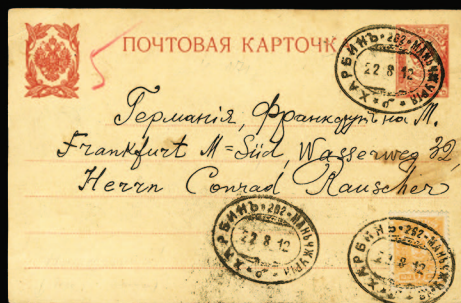 ПОЧТОВАЯ КАРТОЧК
ХАРБИНЪ * 262 * МАНЬЧЖУРІЯ
22 8 12
Германія, Франкфуртъ на М.
Frankfurt M=Süd, Wasserweg 32,
Herrn Conrad Rauscher
ХАРБИНЪ * 262 * МАНЬЧЖУРІЯ
22 8 12
ХАРБИНЪ * 262 * МАНЬЧЖУРІЯ
22 8 12